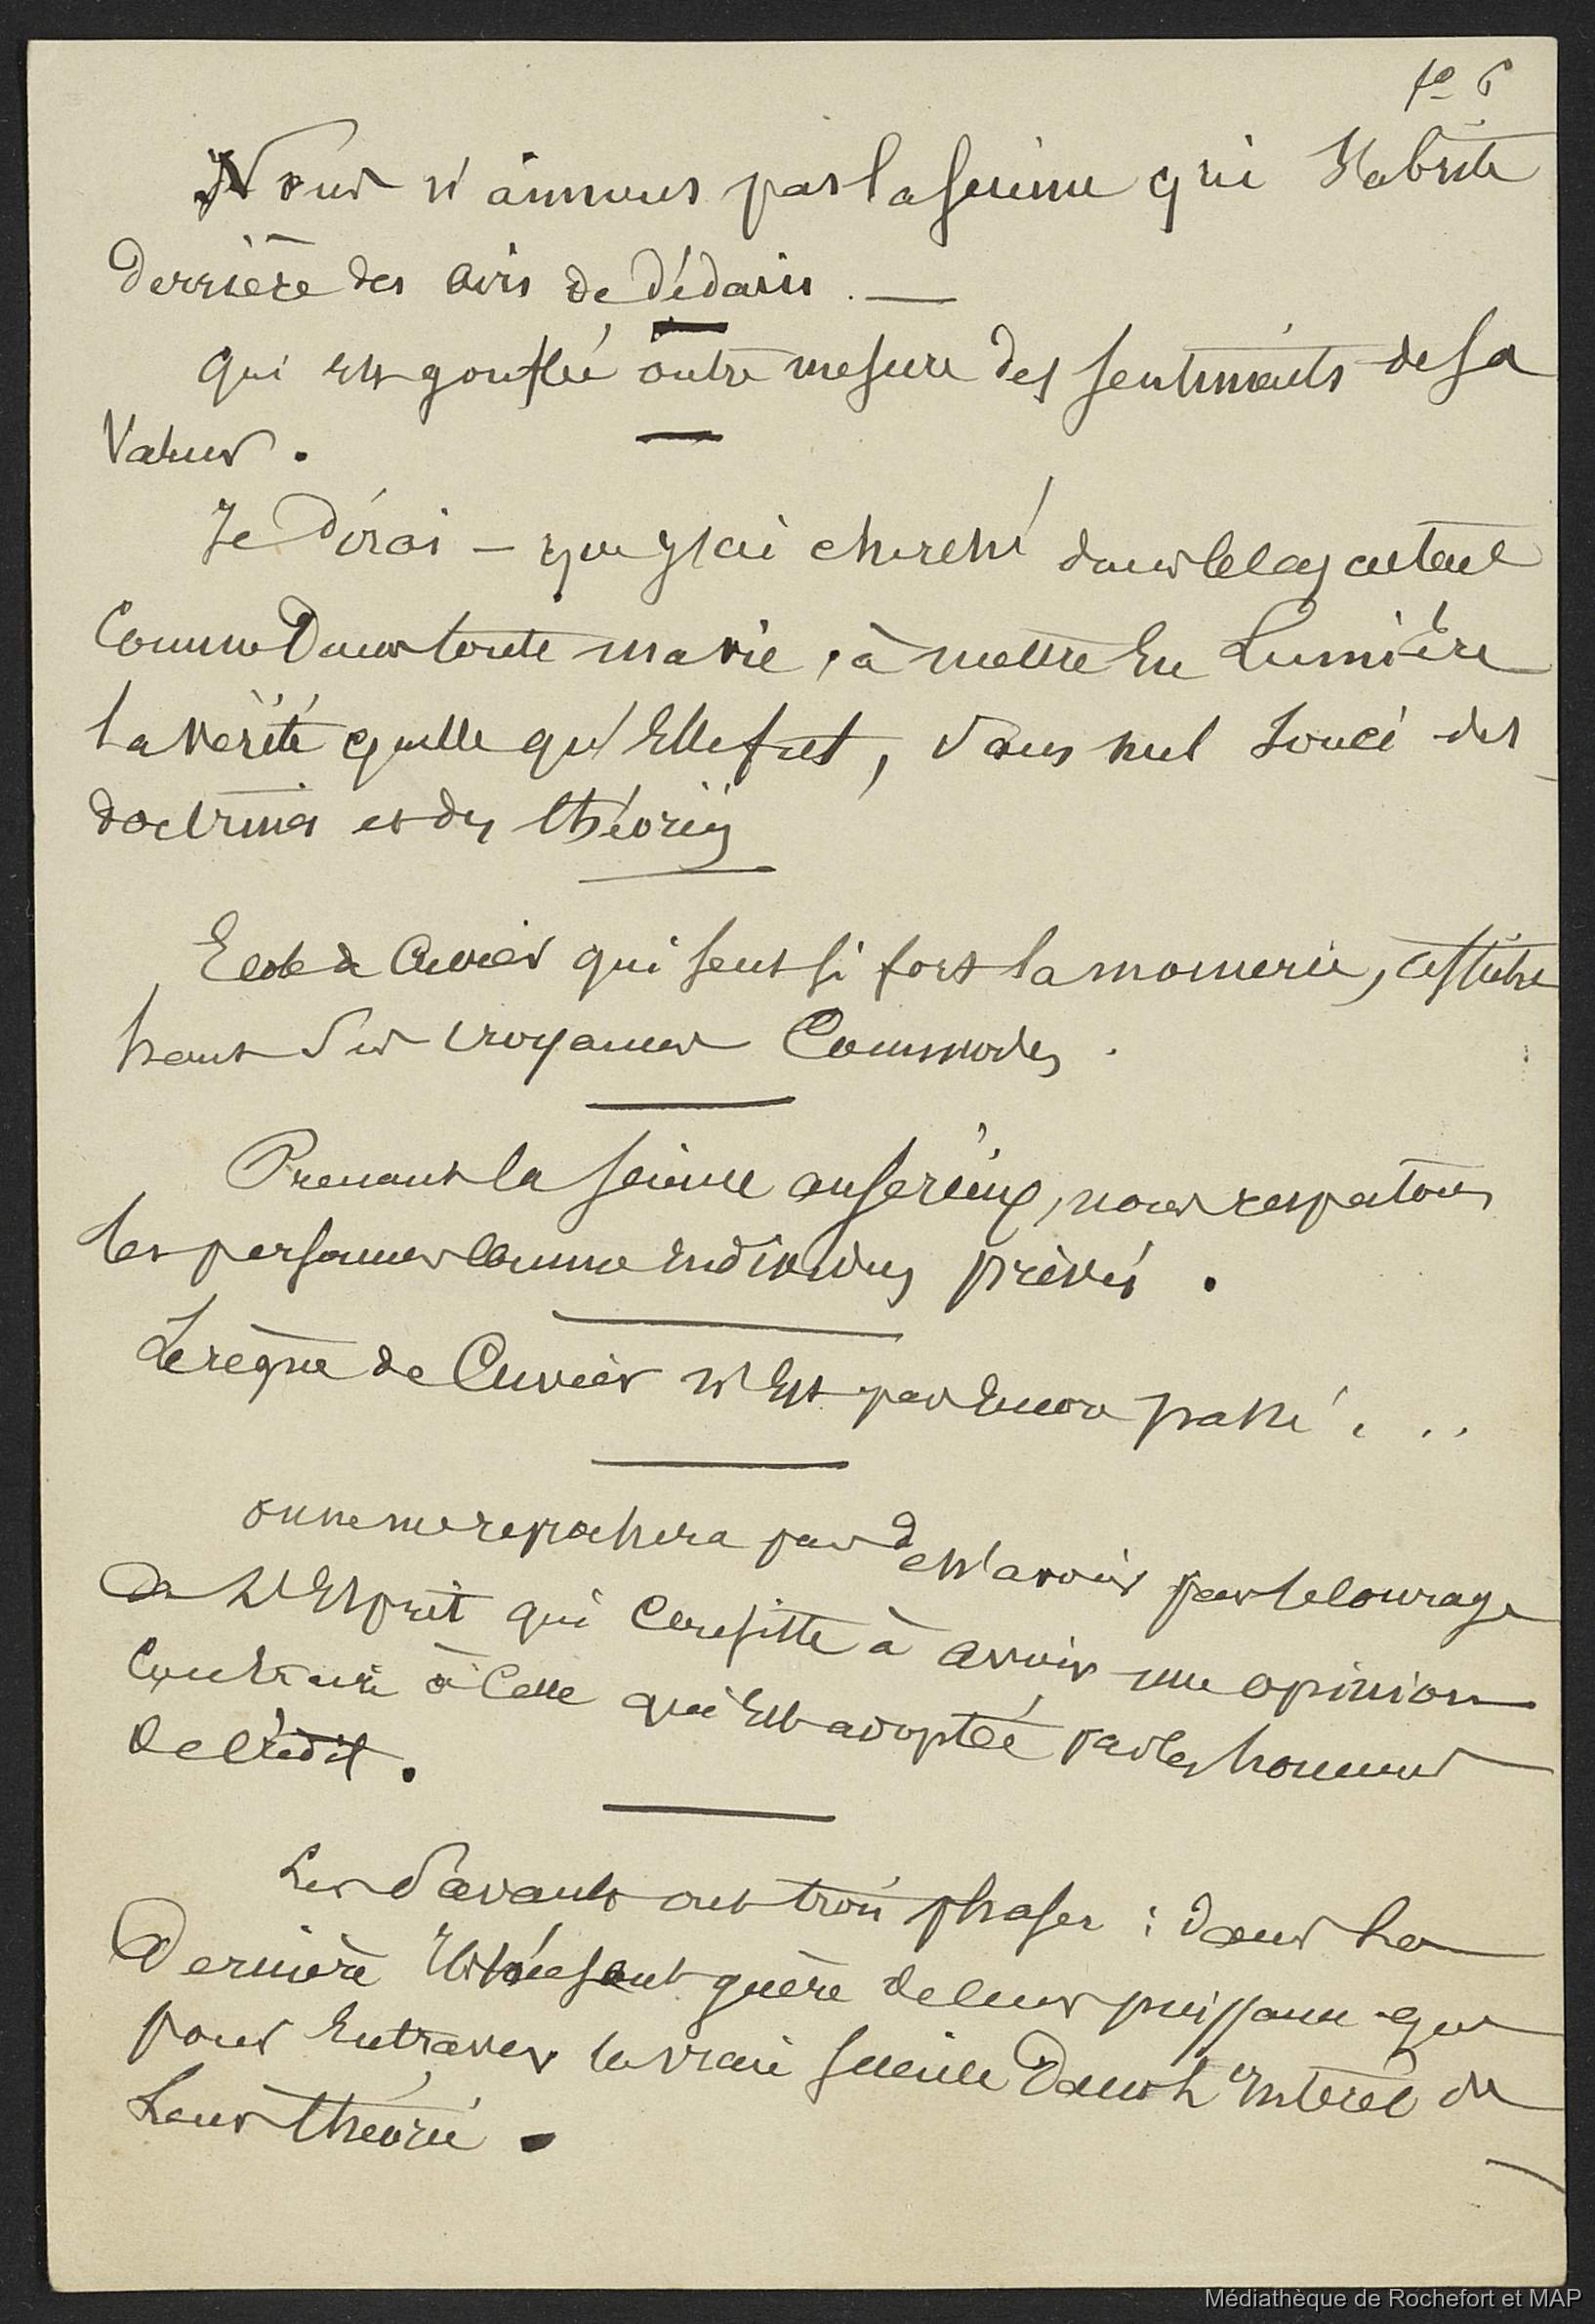 fo 6
Nous n'aimons pas la science qui s'abrite
derrière des airs de dédain. —
qui est gonflée outre mesure des sentiments de sa
valeur.
Je dirai — que j'ai cherché dans le cas actuel
comme dans toute ma vie, à mettre en lumière
la vérité quelle qu'elle fut, sans nul souci des
doctrines et des théories
Ecole de Cuvier qui sent si fort la momerie,
haut ses croyances commodes.
Prenant la science au sérieux, nous respectons
les personnes comme individus privés.
Le règne de Cuvier n'est pas encore passé...
on ne me reprochera pas de n'avoir pas le courage
de l'esprit qui consiste à avoir une opinion
contraire à celle qui est adoptée par les hommes
de crédit.
Les savants ont trois phases : dans la
dernière guère de leur puissance que
pour entraver la vraie science dans l'intérêt de
leur théorie.
Médiathèque de Rochefort et MAP